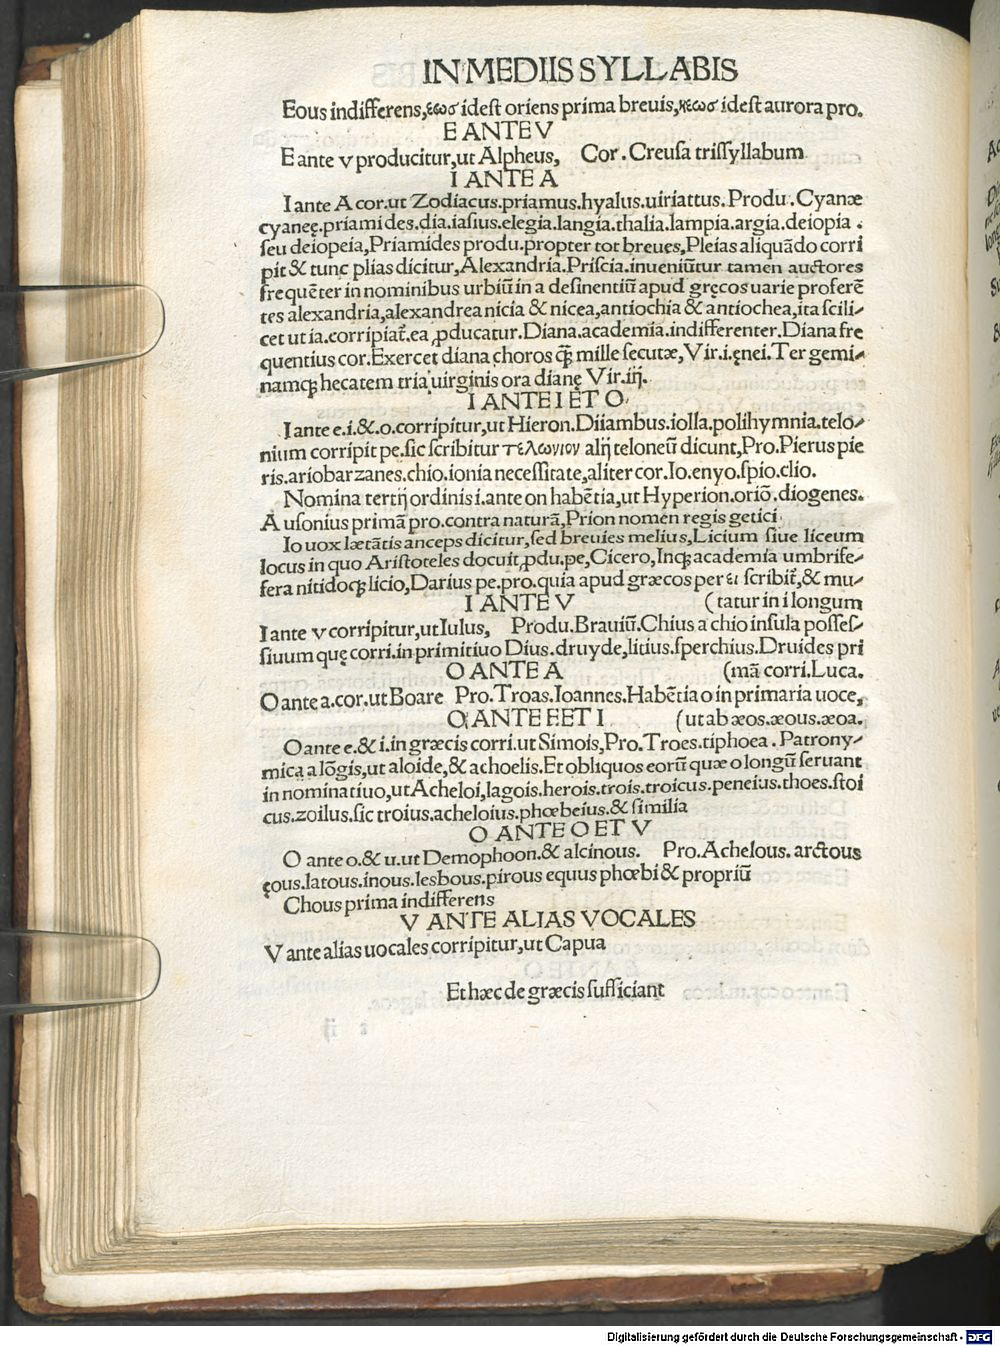 IN MEDIIS SYLLABIS
Eous indifferens,εωσ idest oriens prima breuis,ηεωσ idest aurora pro.
E ANTE V
E ante v producitur,ut Alpheus, Cor.Creusa trissyllabum
I ANTE A
I ante A cor.ut Zodiacus.priamus.hyalus.uiriattus.Produ.Cyanæ
cyaneę.priamides.dia.iasius.elegia.langia.thalia.lampia.argia.deiopia.
seu deiopeia,Priamides produ.propter tot breues,Pleias aliquādo corri
pit & tunc plias dicitur,Alexandria.Priscia.inueniūtur tamen auctores
frequēter in nominibus urbiū in a desinentiū apud gręcos uarie proferē
tes alexandria,alexandrea nicia & nicea,antiochia & antiochea,ita scili-
cet ut ia.corripiat̃.ea ꝓducatur.Diana.academia.indifferenter.Diana fre
quentius cor.Exercet diana choros q̄ꝫ mille secutæ,Vir.i.ęnei.Ter gemi-
namqꝫ hecatem tria uirginis ora dianę Vir.iij.
I ANTE I ET O
I ante e.i.&.o.corripitur,ut Hieron.Diiambus.iolla.polihymnia.telo-
nium corripit pe.sic scribitur τελωνιον alij teloneū dicunt,Pro.Pierus pie
ris.ariobarzanes.chio.ionia necessitate,aliter cor.Io.enyo.spio.clio.
Nomina tertij ordinis i.ante on habētia,ut Hyperion.oriō.diogenes.
Ausonius primā pro.contra naturā,Prion nomen regis getici
Io uox lætātis anceps dicitur,sed breuies melius,Licium siue liceum
locus in quo Aristoteles docuit,ꝓdu.pe,Cicero,Inqꝫ academia umbrife-
fera nitidoqꝫ licio,Darius pe.pro.quia apud græcos per ει scribit̃,& mu-
I ANTE V (tatur in i longum
I ante v corripitur,ut Iulus, Produ.Brauiū.Chius a chio insula posses-
siuum quę corri.in primitiuo Dius.druyde,litius.sperchius.Druides pri
O ANTE A (mā corri.Luca.
O ante a.cor.ut Boare Pro.Troas.Ioannes.Habētia o in primaria uoce,
O ANTE E ET I (ut ab æos.æous.æoa.
O ante e.& i.in græcis corri.ut Simois,Pro.Troes.tiphoea.Patrony-
mica a lōgis,ut aloide,& achoelis.Et obliquos eorū quæ o longū seruant
in nominatiuo,ut Acheloi,lagois.herois.trois.troicus.peneius.thoes.stoi
cus.zoilus.sic troius.acheloius.phœbeius.& similia
O ANTE O ET V
O ante o.& u.ut Demophoon.& alcinous. Pro.Achelous.arctous
ęous.latous.inous.lesbous.pirous equus phœbi & propriū
Chous prima indifferens
V ANTE ALIAS VOCALES
V ante alias uocales corripitur,ut Capua
Et hæc de græcis sufficiant
Digitalisierung gefördert durch die Deutsche Forschungsgemeinschaft - DFG